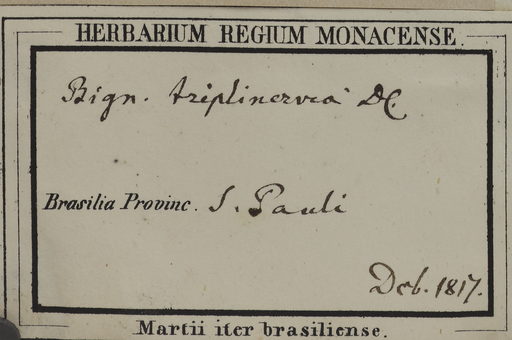 HERBARIUM REGIUM MONACENSE.
Bign. triplinervia DC.
Brasilia Provinc. S. Pauli
Deb. 1817.
Martii iter brasiliense.